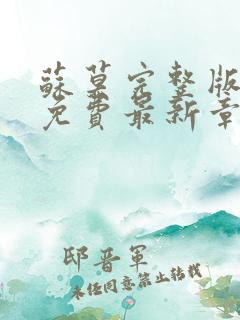 蘇葉完整版
免費最新章
邸晋軍
未任同意禁止轉載